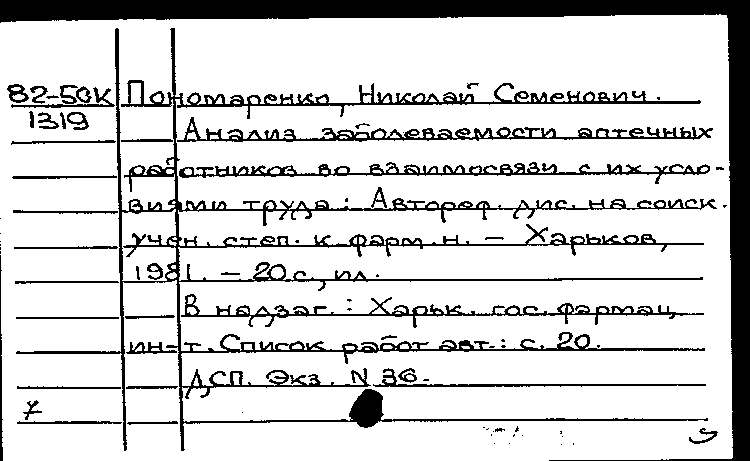 82-50К Пономаренко, Николай Семенович.
1319
Анализ заболеваемости аптечных
работников во взаимосвязи с их усло-
виями труда : Автореф. дис. на соиск.
учен. степ. к. фарм. н. – Харьков,
1981. – 20 с., ил.
В надзаг. : Харьк. гос. фармац.
ин-т. Список работ авт. : с. 20.
ДСП. Экз. N 36.
7